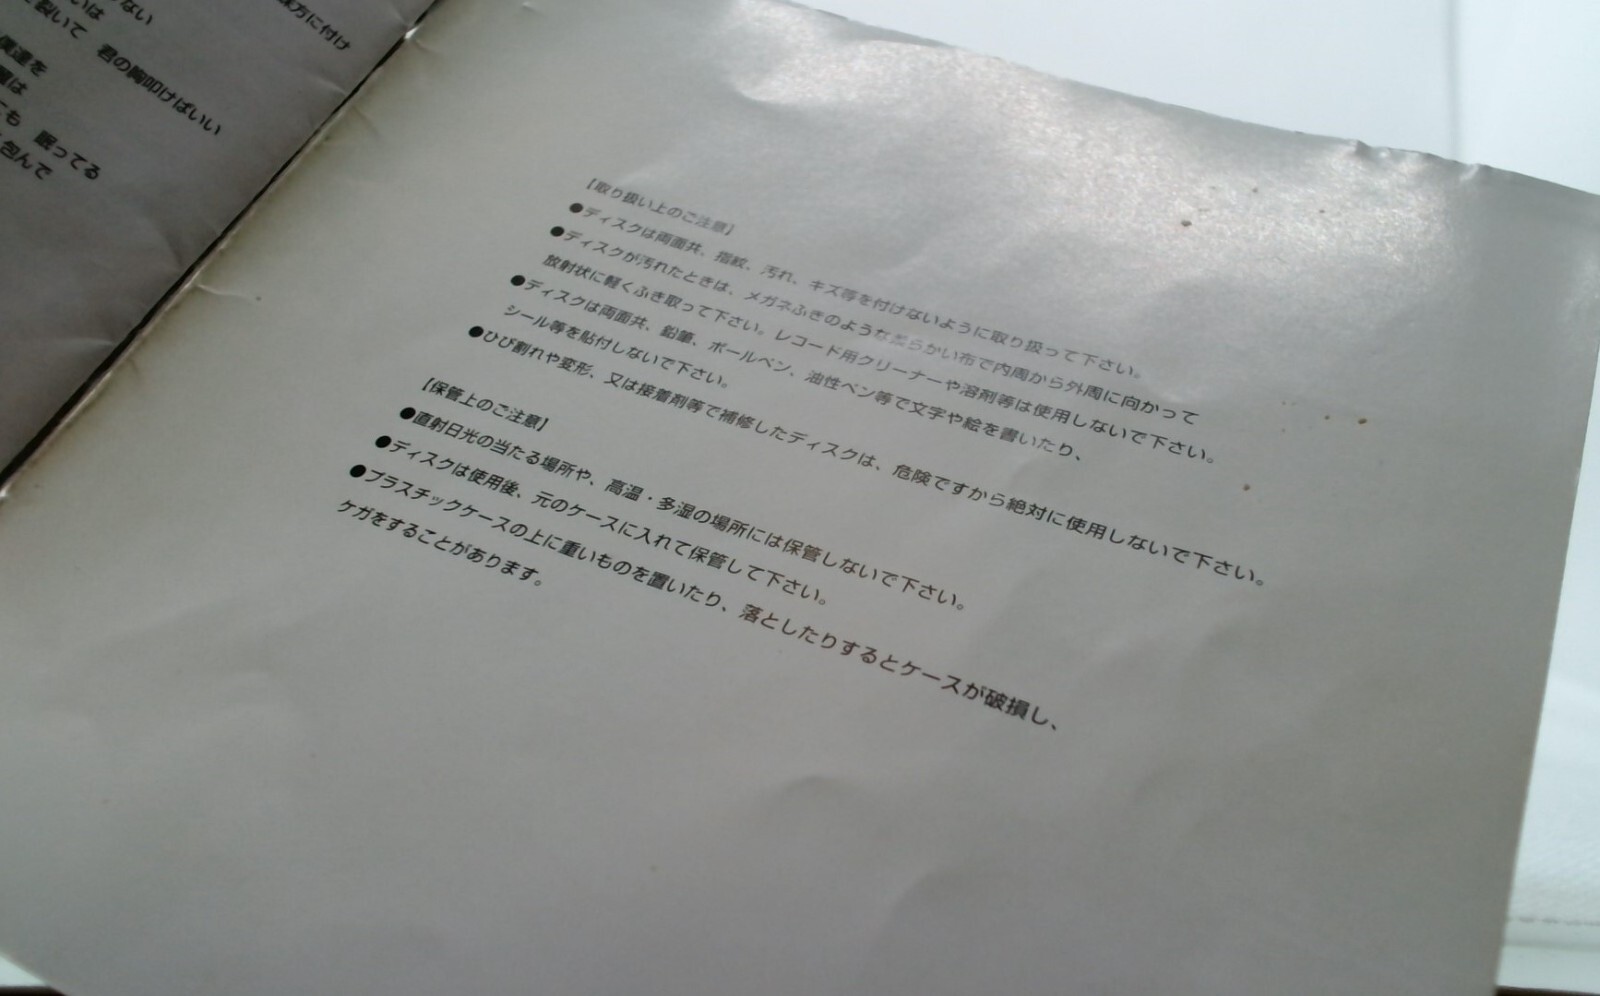 味方に付け
ない
いは
裂いて 君の胸叩けばいい
僕達を
は
も 眠ってる
包んで
【取り扱い上のご注意】
●ディスクは両面共、指紋、汚れ、キズ等を付けないように取り扱って下さい。
●ディスクが汚れたときは、メガネふきのような柔らかい布で内周から外周に向かって
放射状に軽くふき取って下さい。レコード用クリーナーや溶剤等は使用しないで下さい。
●ディスクは両面共、鉛筆、ボールペン、油性ペン等で文字や絵を書いたり、
シール等を貼付しないで下さい。
●ひび割れや変形、又は接着剤等で補修したディスクは、危険ですから絶対に使用しないで下さい。
【保管上のご注意】
●直射日光の当たる場所や、高温・多湿の場所には保管しないで下さい。
●ディスクは使用後、元のケースに入れて保管して下さい。
●プラスチックケースの上に重いものを置いたり、落としたりするとケースが破損し、
ケガをすることがあります。